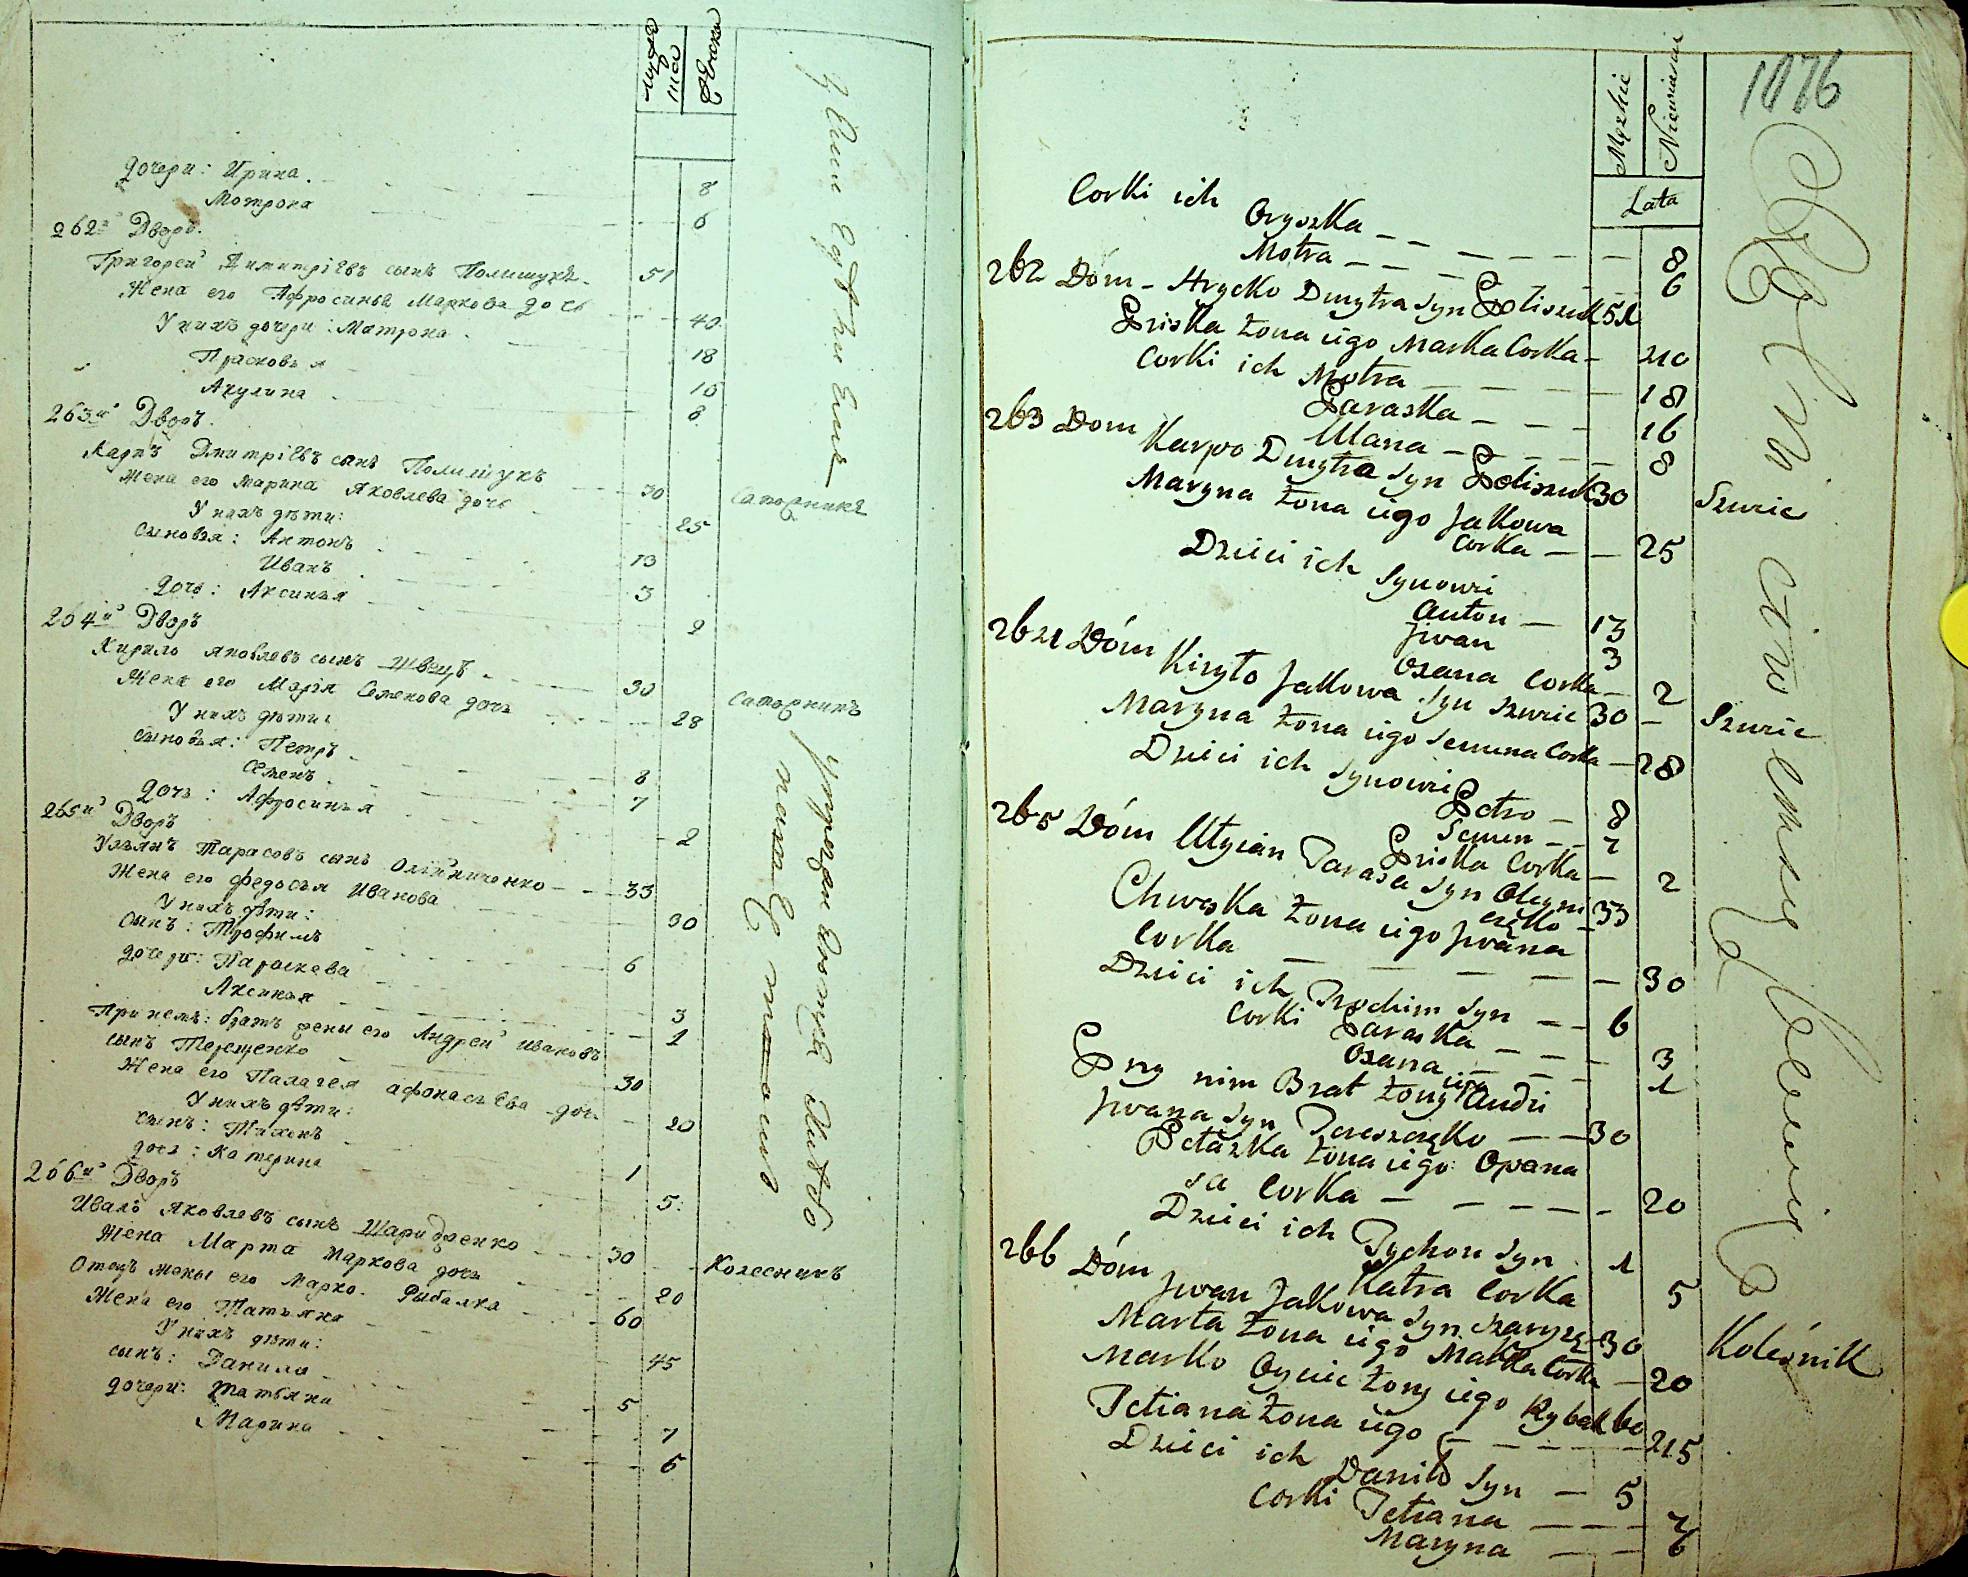 дочери: Ирина. 8
Мотрона 6
262й Дворъ.
Григорей Димитріевъ сынъ Полищукъ 51
Жена его Афросинья Маркова дочь 40
У нихъ дочери: Матрона 18
Прасковья 16
Акулина 8
263й Дворъ.
Карпъ Дмитріевъ сынъ Полищукъ 30 Сапожникъ
Жена его Марина Яковлева дочь 25
У нихъ дѣти:
Сыновья: Антонъ 13
Иванъ 3
дочь: Аксинья 2
264й Дворъ
Кирило Яковлевъ сынъ Швецъ 30 сапожникъ
Жена его Марія Семенова дочь 28
У нихъ дѣти:
Сыновья: Петръ 8
Семенъ 7
дочь: Афросинья 2
265й Дворъ
Ульянъ Тарасовъ сынъ Олѣйниченко 33
Жена его Федосья Иванова 30
У нихъ дѣти:
сынъ: Трофимъ 6
дочери: Параскева 3
Аксинья 1
При немъ: братъ жены его Андрей Ивановъ
сынъ Терещенко 30
Жена его Палагея афонасьева доч. 20
У нихъ дѣти:
сынъ: Тихонъ 1
дочь: Катерина 5
266й Дворъ
Иванъ Яковлевъ сынъ Шариденко 30 Колесникъ
Жена Марта Маркова дочь 20
Отецъ жены его Марко Рыбалка 60
Жена его Татьяна 45
У нихъ дѣти:
сынъ: Данило 5
дочери: Татьяна 7
Марина 6
1076
Męzkie
Niewieście
Lata
Corki ich Oryszka 8
Motra 6
262 Dóm - Hrycko Dmytra Syn Poliszuk 51
Priska Żona iego Marka Corka 40
Corki ich Motra 18
Paraska 16
Ulana 8
263 Dom Karpo Dmytra Syn Poliszuk 30 Szwiec
Maryna Żona iego Jakowa
Corka 25
Dzieci ich Synowie
Anton 13
Jwan 3
Oxana Corka 2
264 Dóm Kiryło Jakowa Syn Szwiec 30 Szwiec
Maryna Żona iego Semena Corka 28
Dzieci ich Synowie Petro 8
Semen 7
Priska Corka 2
265 Dóm Ulyian Tarasa Syn Oleyni
częko 33
Chweska Żona iego Jwana
Corka 30
Dzieci ich Trochim Syn 6
Corki Paraska 3
Oxana 1
Przy nim Brat Żony iego Andri
Jwana Syn Tereszczęko 30
Petaszka Żona iego Opana
sa Corka 20
Dzieci ich Tychon Syn 1
Katra Corka 5
266 Dóm Jwan Jakowa Syn Szaryzę 30 Koleśnik
Marta Żona iego Marka Corka 20
Marko Oyciec Żony iego Rybak 60
Tetiana Żona iego 45
Dzieci ich Daniło Syn 5
Corki Tetiana 7
Maryna 6